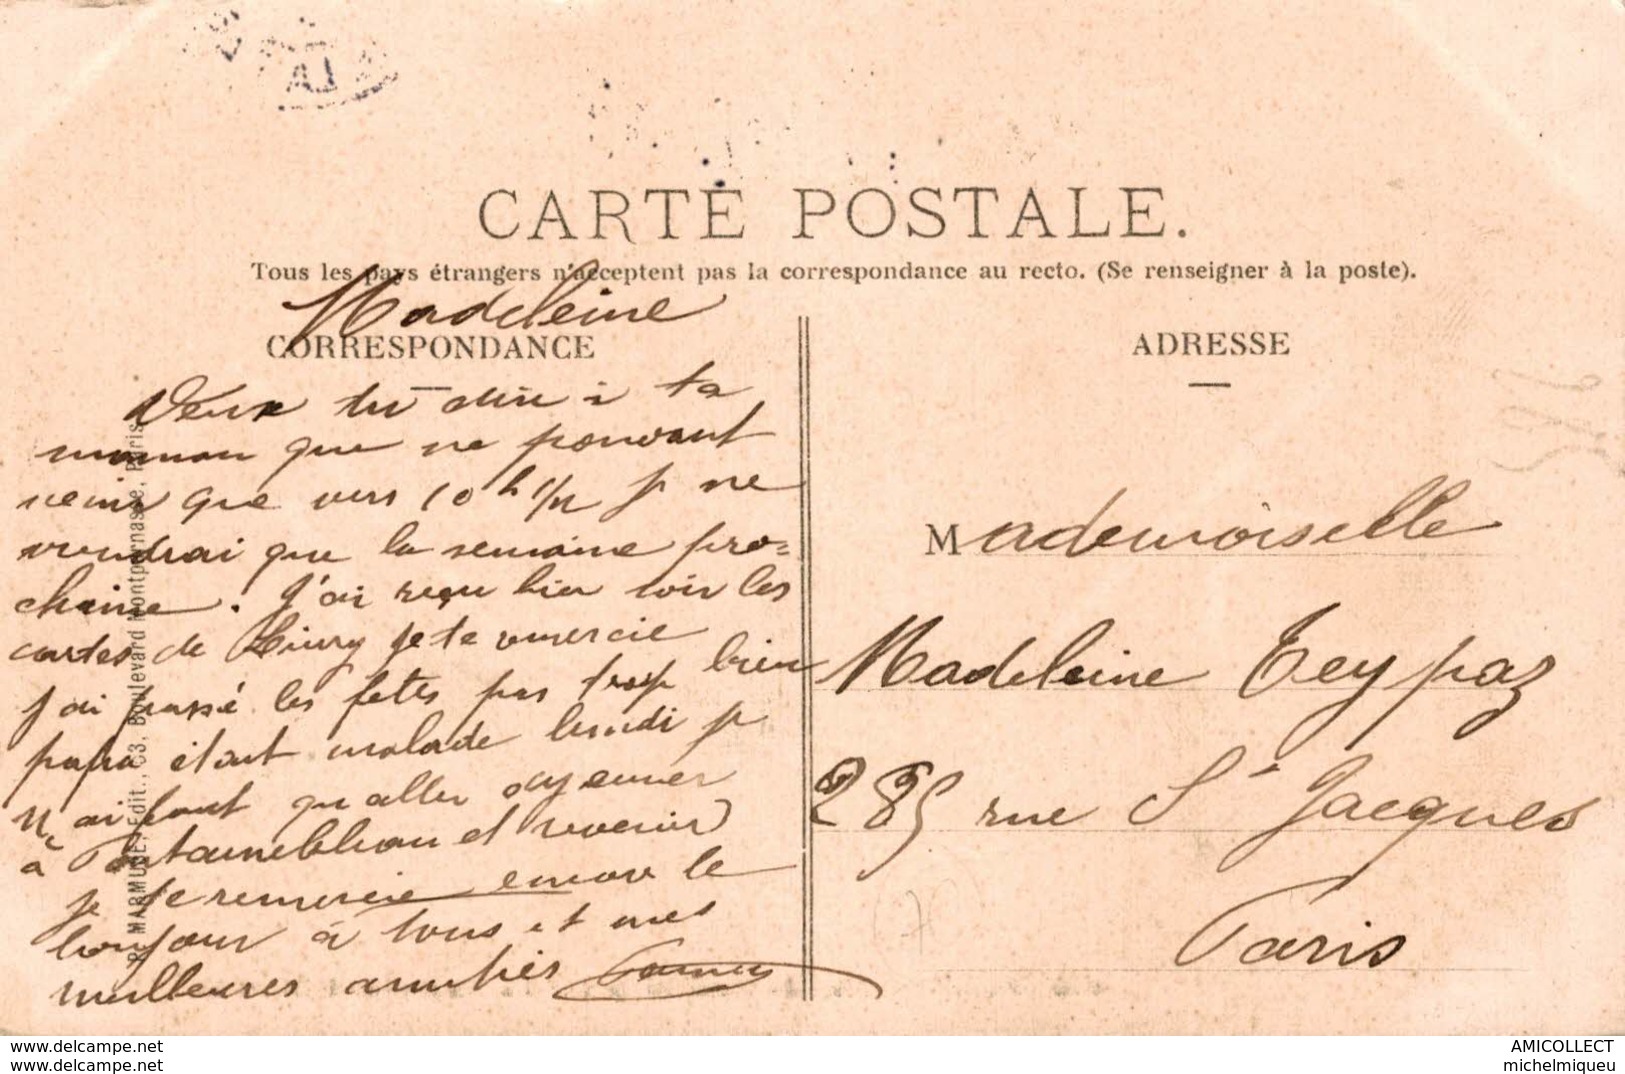 CARTE POSTALE.
Tous les pays étrangers n'acceptent pas la correspondance au recto. (Se renseigner à la poste).
Madeleine
CORRESPONDANCE
Veux tu dire à ta
maman que ne pouvant
venir que vers 10 h 1/2 je ne
viendrai que la semaine pro=
chaine. J'ai reçu hier soir les
cartes de Livry je te remercie
J'ai passé les fêtes pas trop bien
papa étant malade lundi je
n'ai fait qu'aller déjeuner
à Fontainebleau et revenir
je te remercie encore le
bonjour à tous et mes
meilleures amitiés
R. MARMUSE, Edit., 63, Boulevard Montparnasse, Paris
ADRESSE
Mademoiselle
Madeleine Teypaz
285 rue St Jacques
Paris
www.delcampe.net
www.delcampe.net
AMICOLLECT
michelmiqueu